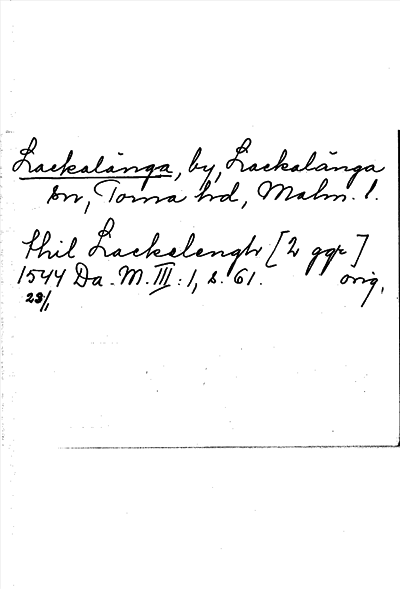 Lackalänga, by, Lackalänga
sn, Torna hd, Malm. l.
thil Lackelengh [2 ggr]
1544 Da. M. III: 1, s. 61. orig.
23/1